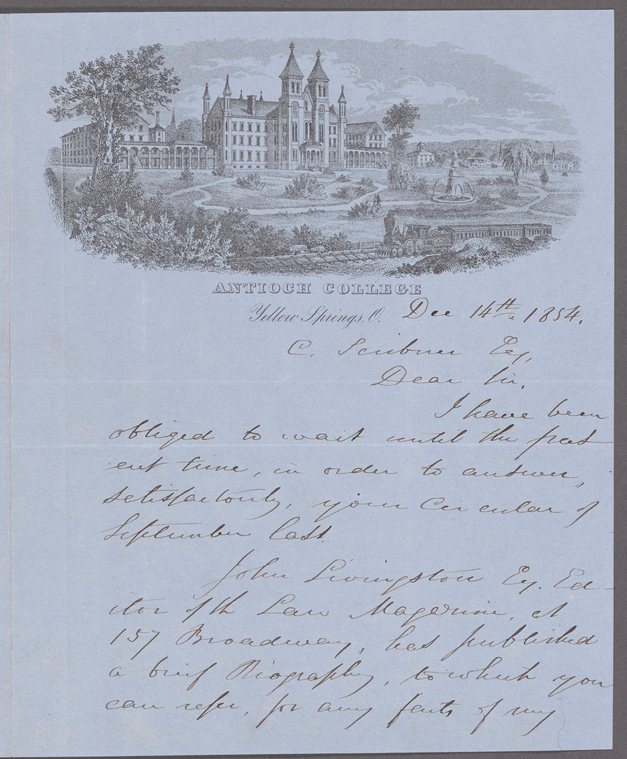 ANTIOCH COLLEGE
Yellow Springs, O. Dec 14th, 1854.
C. Scribner Esq,
Dear Sir,
I have been
obliged to wait until the pres
ent time, in order to answer,
satisfactorily, your Circular of
September last.
John Livingston Esq. Ed-
itor of the Law Magazine, at
157 Broadway, has published
a brief Biography, to which you
can refer, for any facts of my